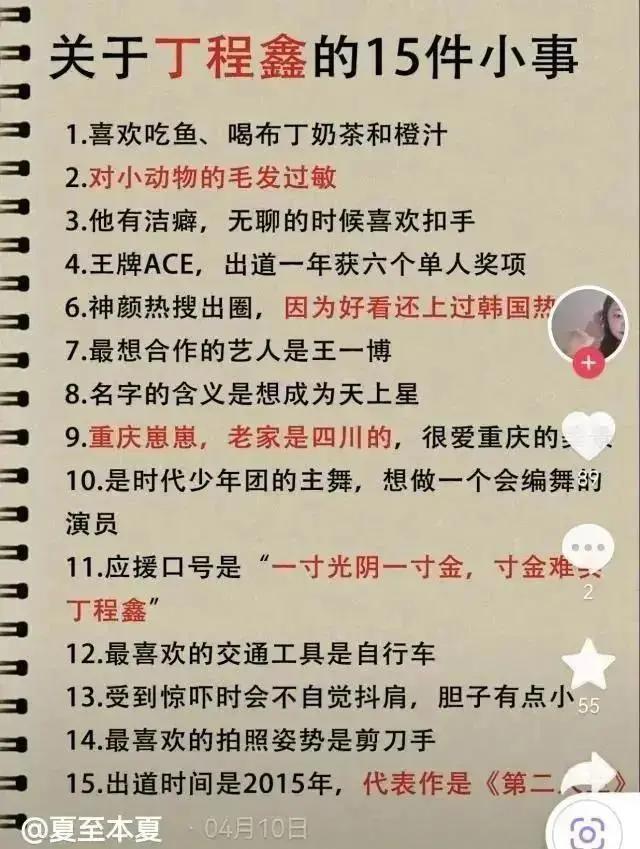 关于丁程鑫的15件小事
1.喜欢吃鱼、喝布丁奶茶和橙汁
2.对小动物的毛发过敏
3.他有洁癖，无聊的时候喜欢扣手
4.王牌ACE，出道一年获六个单人奖项
6.神颜热搜出圈，因为好看还上过韩国热
7.最想合作的艺人是王一博
8.名字的含义是想成为天上星
9.重庆崽崽，老家是四川的，很爱重庆的
10.是时代少年团的主舞，想做一个会编舞的
演员
11.应援口号是“一寸光阴一寸金，寸金难买
丁程鑫”
12.最喜欢的交通工具是自行车
13.受到惊吓时会不自觉抖肩，胆子有点小
14.最喜欢的拍照姿势是剪刀手
15.出道时间是2015年，代表作是《第二人生》
89
2
55
@夏至本夏 · 04月10日